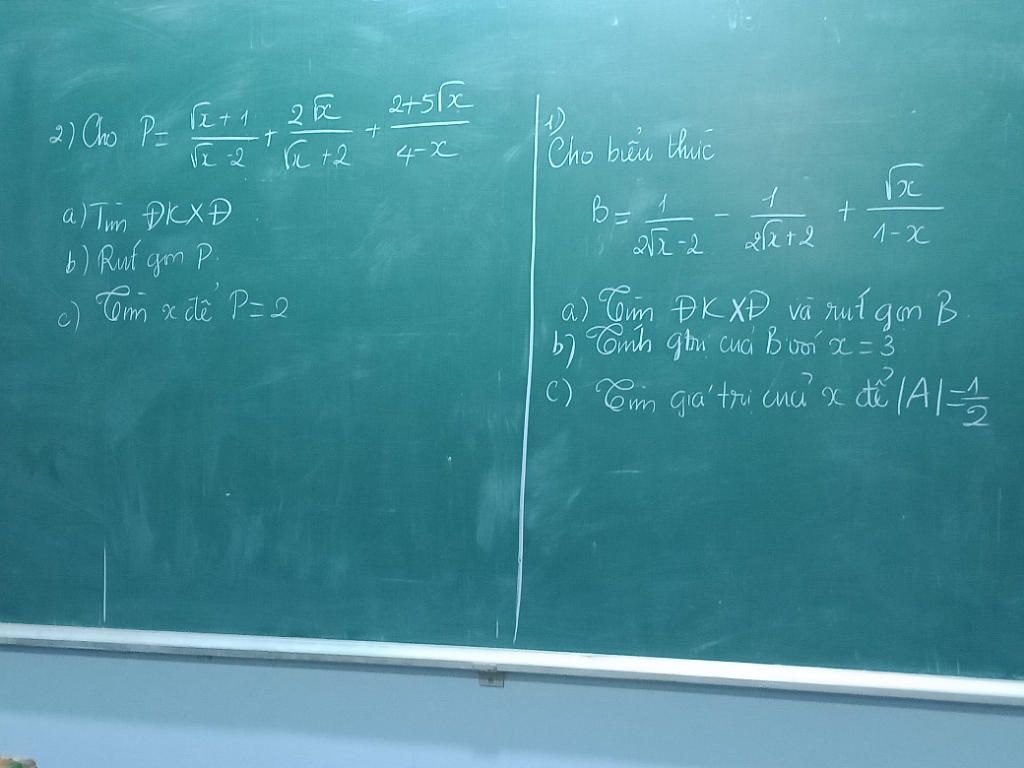 2) Cho P = (√x + 1)/(√x - 2) + (2√x)/(√x + 2) + (2 + 5√x)/(4 - x)
a) Tìm ĐKXĐ.
b) Rút gọn P.
c) Tìm x để P = 2
1)
Cho biểu thức
B = 1/(2√x - 2) - 1/(2√x + 2) + √x/(1 - x)
a) Tìm ĐKXĐ và rút gọn B
b) Tính gtrị của B với x = 3
c) Tìm giá trị của x để |A| = 1/2